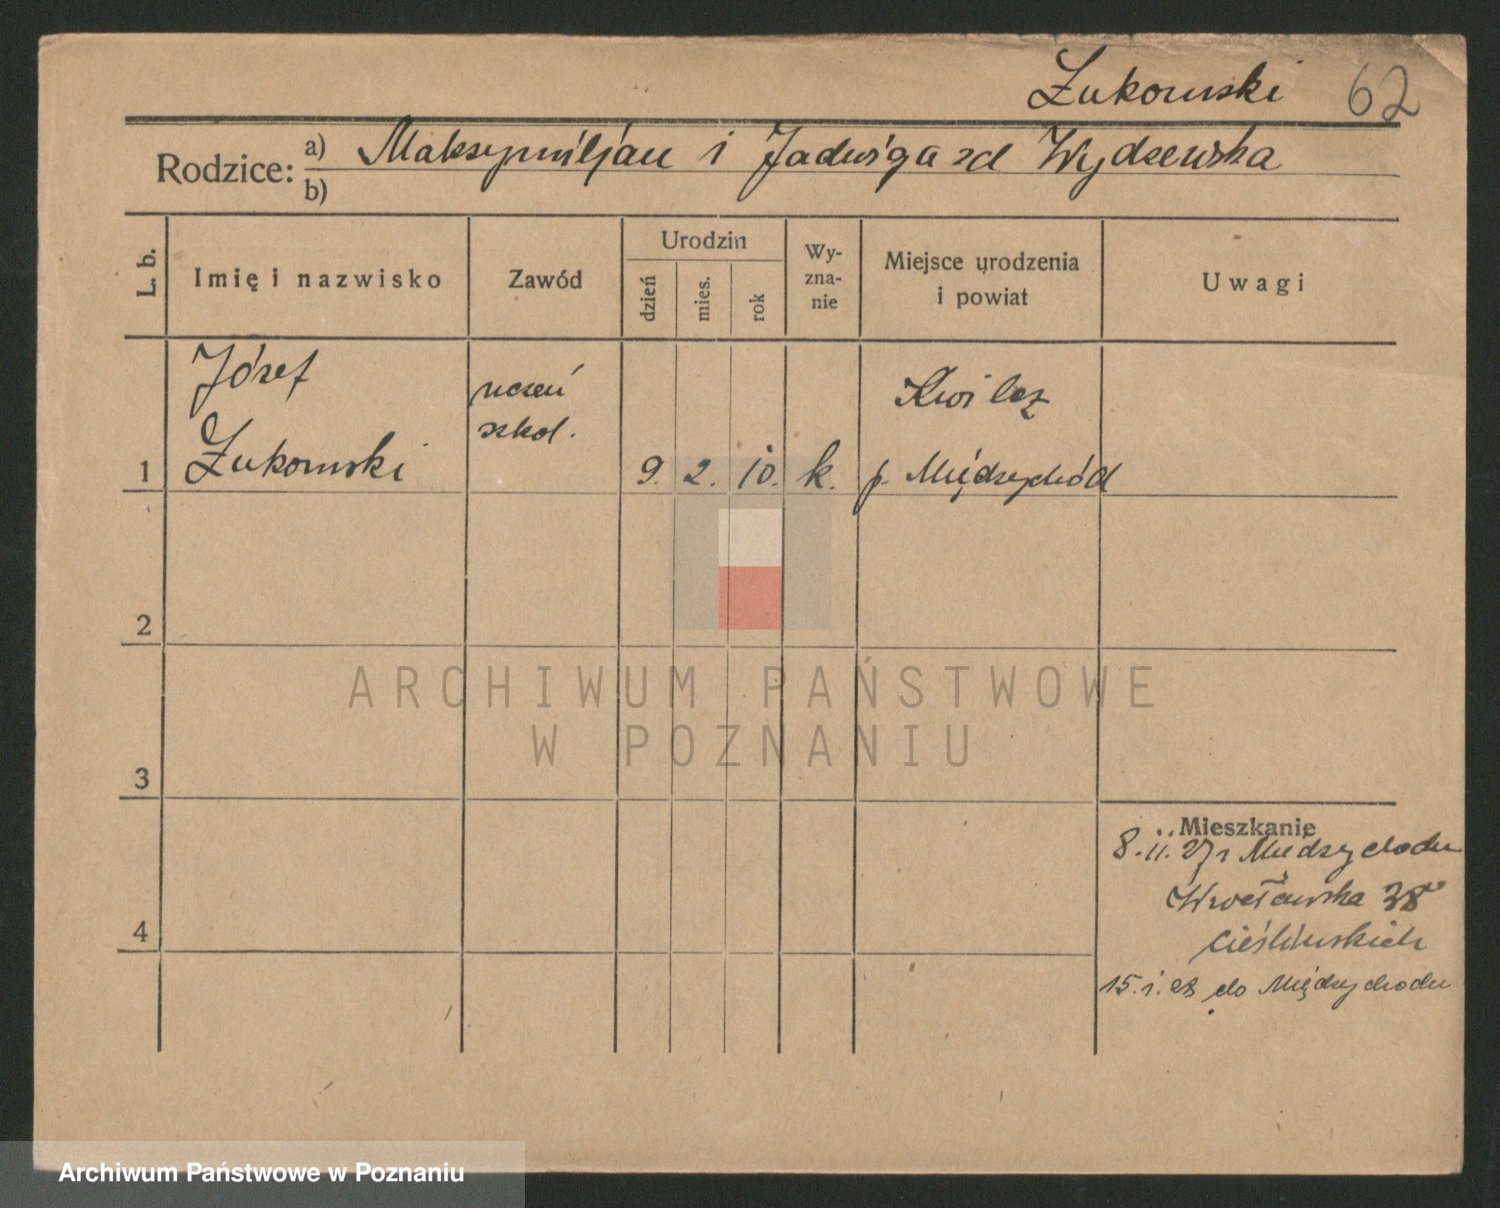 Żukowski 62
Rodzice: a) Maksymiljan i Jadwiga zd Wydzewska
b)
L. b.
Imię i nazwisko
Zawód
Urodzin
dzień
mies.
rok
Wy-
zna-
nie
Miejsce urodzenia
i powiat
Uwagi
Józef
Żukowski
uczeń
szkol.
1 9. 2. 10. k.
Kwilcz
p. Międzychód
2
3
4
Mieszkanie
8.11.27 z Międzychodu
Wrocławska 38
Cieślińskich
15.1.28 do Międzychodu
ARCHIWUM PAŃSTWOWE
W POZNANIU
Archiwum Państwowe w Poznaniu